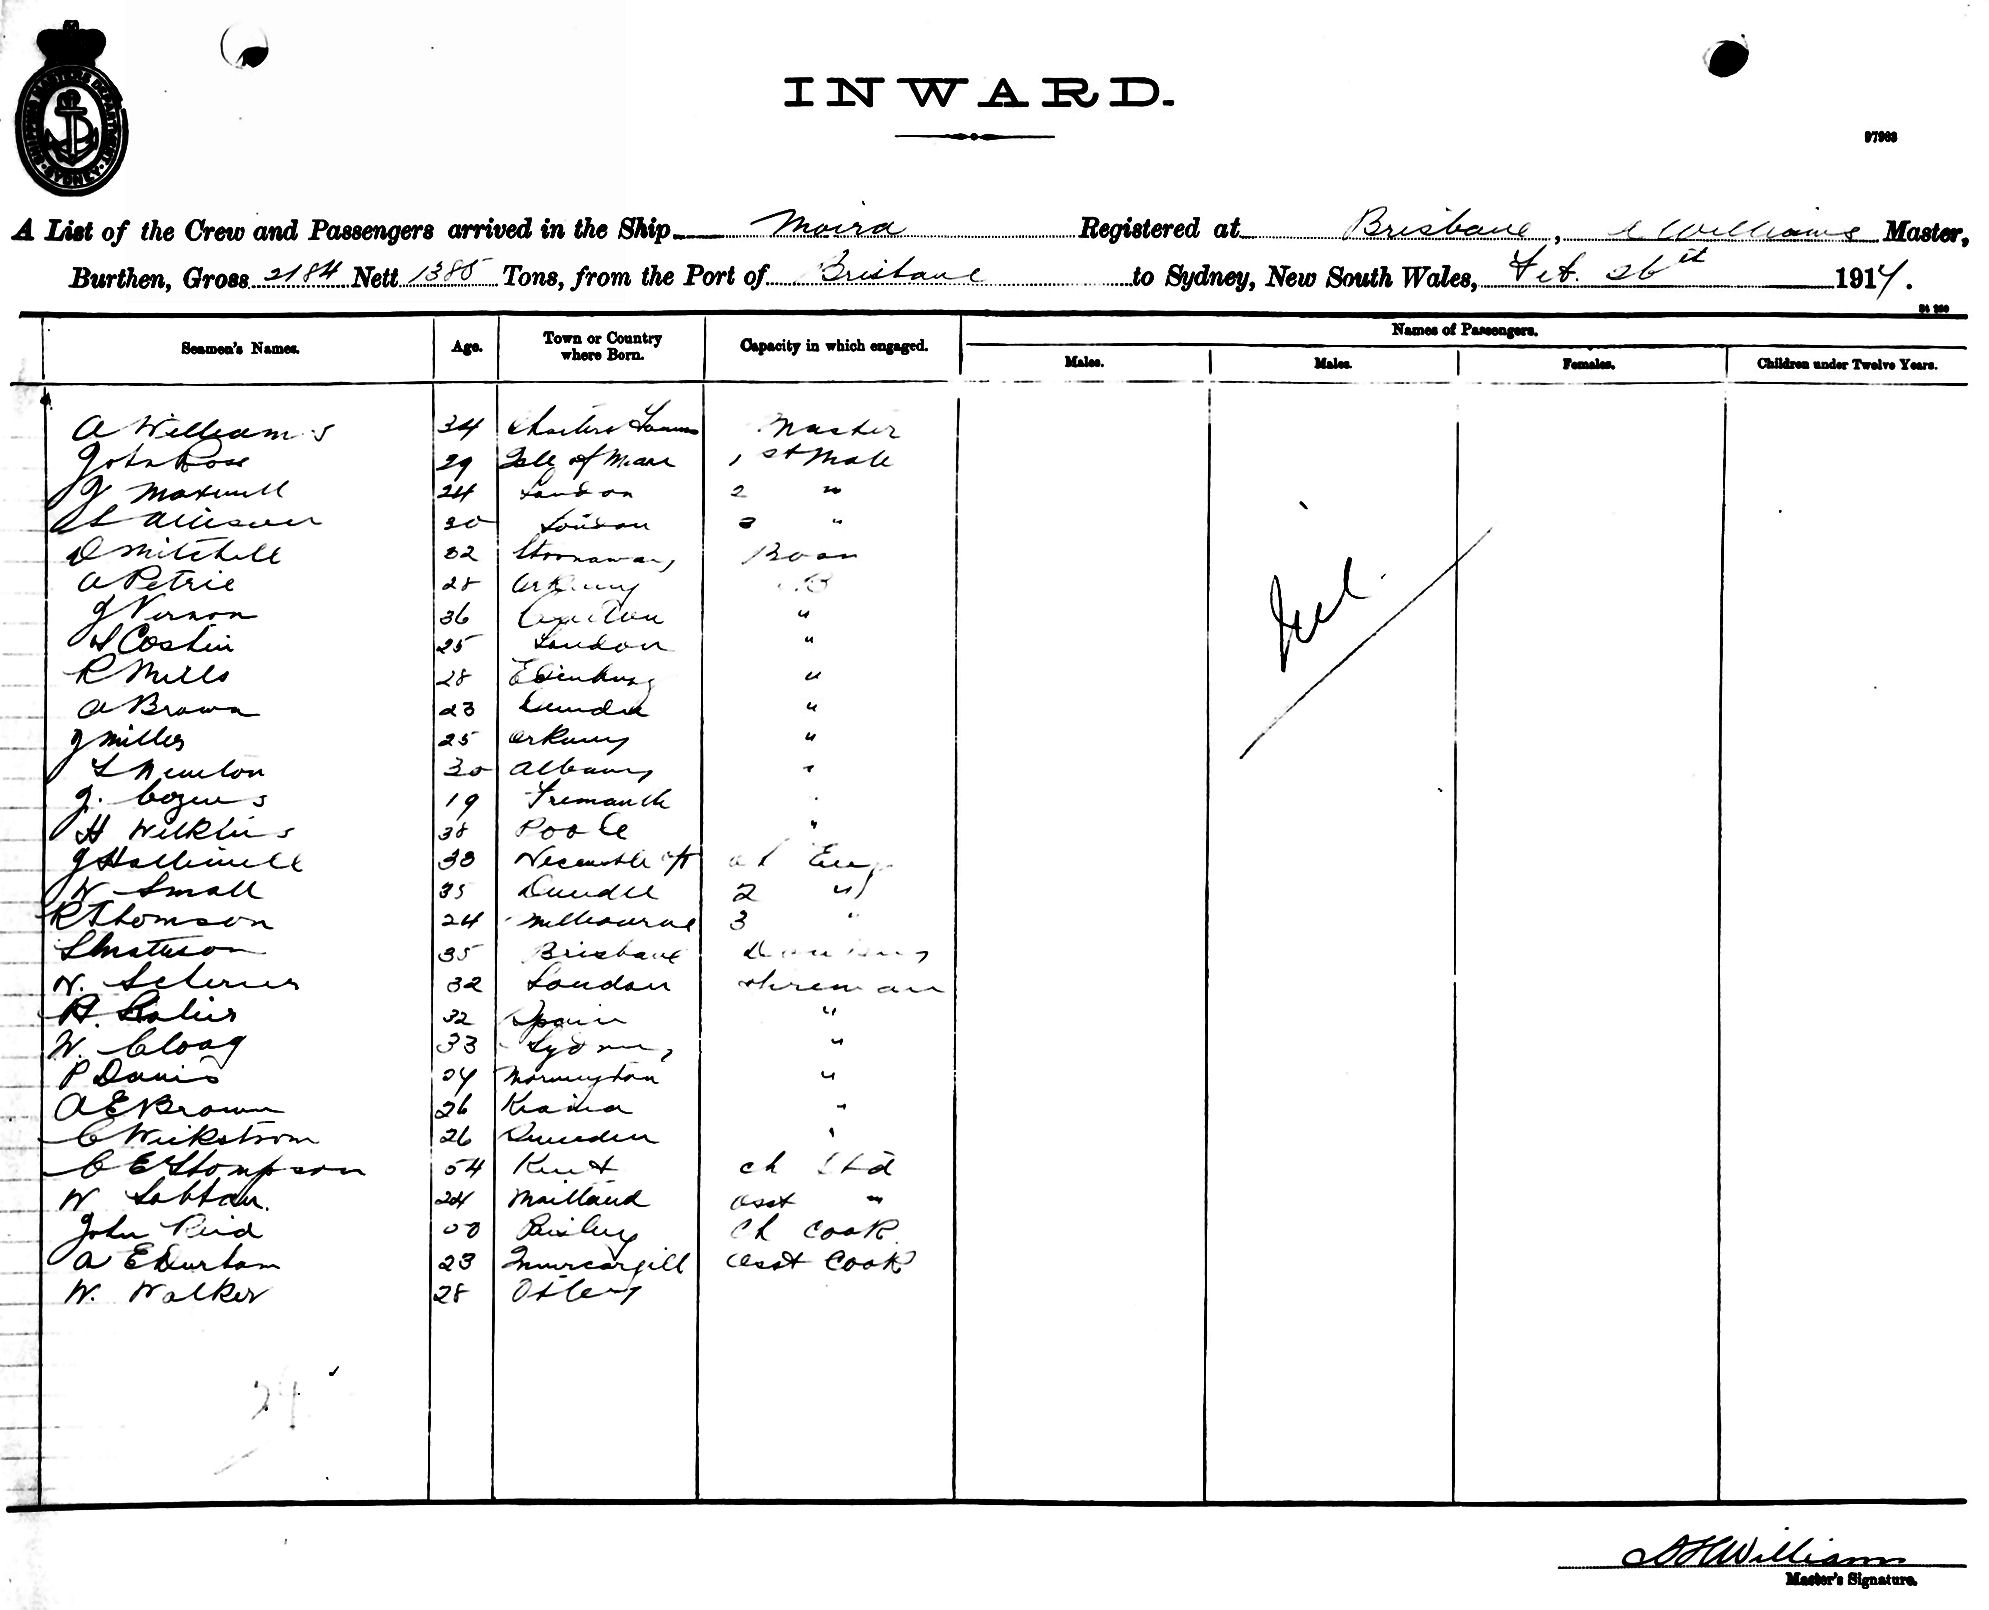 SHIPPING MASTERS DEPARTMENT SYDNEY
INWARD.
97963
A List of the Crew and Passengers arrived in the Ship Moira Registered at Brisbane, Williams Master,
Burthen, Gross 2184 Nett 1385 Tons, from the Port of Brisbane to Sydney, New South Wales, Feb. 26th 1914.
Seamen's Names. Age. Town or Country where Born. Capacity in which engaged. Names of Passengers.
Males. Males. Females. Children under Twelve Years.
A Williams 34 Charters Master
John Ross 29 Isle of Man 1st Mate
J Maxwell 24 London 2 "
Allison 20 London 3 "
D Mitchell 32 Stornaway Bosn
A Petrie 28 Orkney AB
J Vernon 36 "
Costin 25 London "
R Mills 28 Edinburg "
A Brown 23 Dundee "
J Miller 25 Orkney "
Newton 30 Albany "
J. Cozens 19 Fremantle
H Wilkins 38 Poole "
J Halliwell 33 Newcastle ch Eng
W Small 35 Dundee 2 "
R Thomson 24 Melbourne 3 "
Matheson 35 Brisbane Donkey
32 London Fireman
32 Spain "
W. Cloag 33 Sydney "
P Davis 24 Mornington "
A E Brown 26 Kiama "
C Wickstrom 26 "
C E Thompson 54 Kent ch Std
W 24 Maitland asst "
John Reid Paisley Ch Cook
A E Durham 23 Invercargill Asst Cook
W. Walker 28 Otley
Nil
29
Williams
Master's Signature.